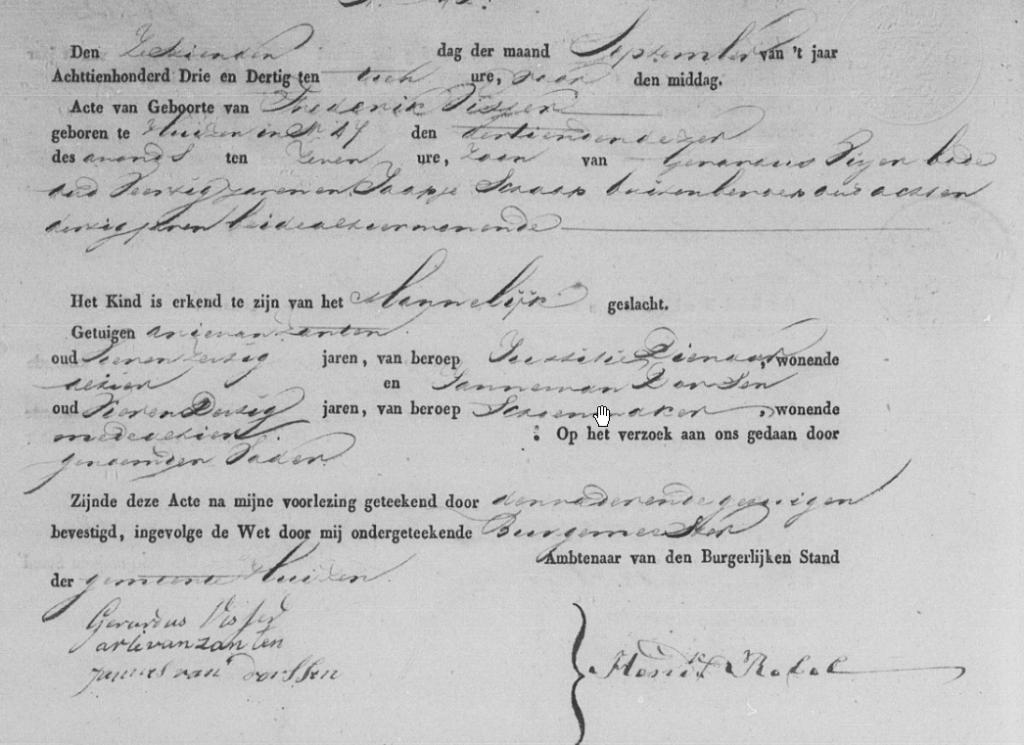 Den Zestienden dag der maand September van 't jaar
Achttienhonderd Drie en Dertig ten ure, voor den middag.
Acte van Geboorte van Frederik Visser
geboren te Huizen in No 47 den dertienden dezer
des avonds ten zeven ure, zoon van Gerardus Visser
oud Veertig jaren en Jaapje Schaap buiten beroep oud acht en
dertig jaren beide alhier wonende
Het Kind is erkend te zijn van het Mannelijk geslacht.
Getuigen arie van zanten
oud jaren, van beroep Dienaar, wonende
alhier en Jannes van Dorssen
oud Vier en Dertig jaren, van beroep Schoenmaker, wonende
mede alhier. Op het verzoek aan ons gedaan door
genoemden Vader
Zijnde deze Acte na mijne voorlezing geteekend door den vader en de getuigen
bevestigd, ingevolge de Wet door mij ondergeteekende Burgemeester
Ambtenaar van den Burgerlijken Stand
der gemeente Huizen
Gerardus Visser
arie van zanten
Jannes van dorssen